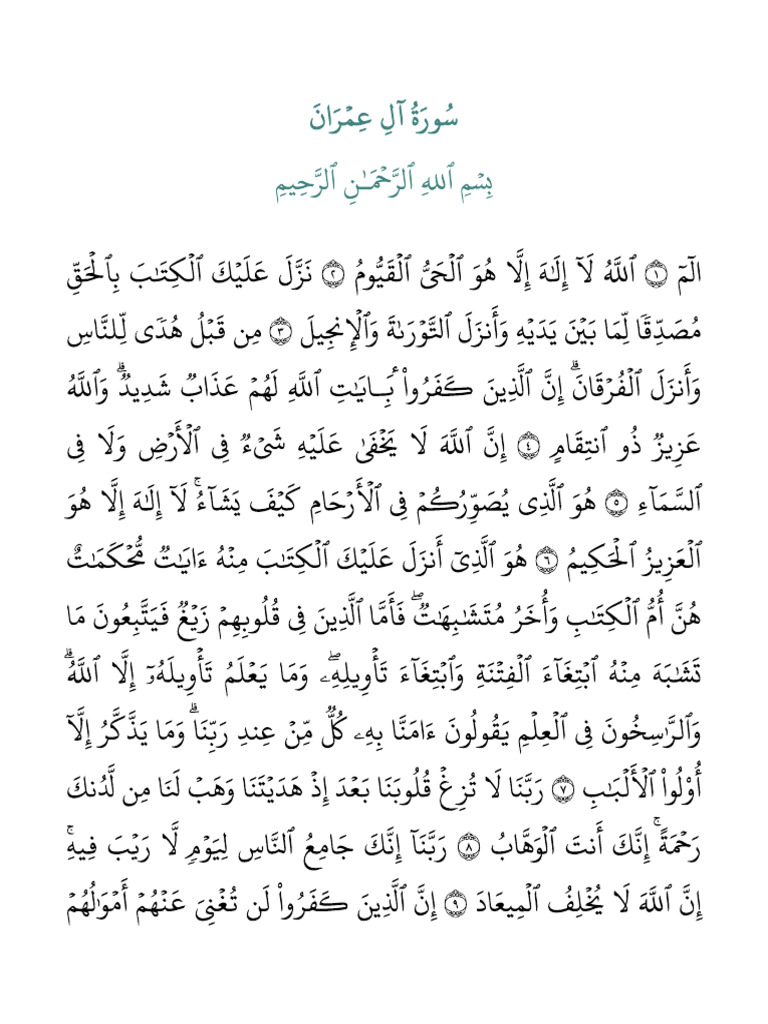 سُورَةُ آلِ عِمۡرَانَ
بِسۡمِ ٱللهِ ٱلرَّحۡمَـٰنِ ٱلرَّحِيمِ
الٓمٓ ١ ٱللَّهُ لَآ إِلَـٰهَ إِلَّا هُوَ ٱلۡحَىُّ ٱلۡقَيُّومُ ٢ نَزَّلَ عَلَيۡكَ ٱلۡكِتَـٰبَ بِٱلۡحَقِّ
مُصَدِّقًا لِّمَا بَيۡنَ يَدَيۡهِ وَأَنزَلَ ٱلتَّوۡرَىٰةَ وَٱلۡإِنجِيلَ ٣ مِن قَبۡلُ هُدًى لِّلنَّاسِ
وَأَنزَلَ ٱلۡفُرۡقَانَ‌ۗ إِنَّ ٱلَّذِينَ كَفَرُواْ بِـَٔـايَـٰتِ ٱللَّهِ لَهُمۡ عَذَابٌ شَدِيدٌ‌ۗ وَٱللَّهُ
عَزِيزٌ ذُو ٱنتِقَامٍ ٤ إِنَّ ٱللَّهَ لَا يَخۡفَىٰ عَلَيۡهِ شَىۡءٌ فِى ٱلۡأَرۡضِ وَلَا فِى
ٱلسَّمَآءِ ٥ هُوَ ٱلَّذِى يُصَوِّرُكُمۡ فِى ٱلۡأَرۡحَامِ كَيۡفَ يَشَآءُ‌ۚ لَآ إِلَـٰهَ إِلَّا هُوَ
ٱلۡعَزِيزُ ٱلۡحَكِيمُ ٦ هُوَ ٱلَّذِىٓ أَنزَلَ عَلَيۡكَ ٱلۡكِتَـٰبَ مِنۡهُ ءَايَـٰتٌ مُّحۡكَمَـٰتٌ
هُنَّ أُمُّ ٱلۡكِتَـٰبِ وَأُخَرُ مُتَشَـٰبِهَـٰتٌ‌ۖ فَأَمَّا ٱلَّذِينَ فِى قُلُوبِهِمۡ زَيۡغٌ فَيَتَّبِعُونَ مَا
تَشَـٰبَهَ مِنۡهُ ٱبۡتِغَآءَ ٱلۡفِتۡنَةِ وَٱبۡتِغَآءَ تَأۡوِيلِهِۦ‌ۖ وَمَا يَعۡلَمُ تَأۡوِيلَهُۥٓ إِلَّا ٱللَّهُ‌ۗ
وَٱلرَّٲسِخُونَ فِى ٱلۡعِلۡمِ يَقُولُونَ ءَامَنَّا بِهِۦ كُلٌّ مِّنۡ عِندِ رَبِّنَا‌ۗ وَمَا يَذَّكَّرُ إِلَّآ
أُوْلُواْ ٱلۡأَلۡبَـٰبِ ٧ رَبَّنَا لَا تُزِغۡ قُلُوبَنَا بَعۡدَ إِذۡ هَدَيۡتَنَا وَهَبۡ لَنَا مِن لَّدُنكَ
رَحۡمَةً‌ۚ إِنَّكَ أَنتَ ٱلۡوَهَّابُ ٨ رَبَّنَآ إِنَّكَ جَامِعُ ٱلنَّاسِ لِيَوۡمٍ لَّا رَيۡبَ فِيهِ‌ۚ
إِنَّ ٱللَّهَ لَا يُخۡلِفُ ٱلۡمِيعَادَ ٩ إِنَّ ٱلَّذِينَ كَفَرُواْ لَن تُغۡنِىَ عَنۡهُمۡ أَمۡوَٲلُهُمۡ